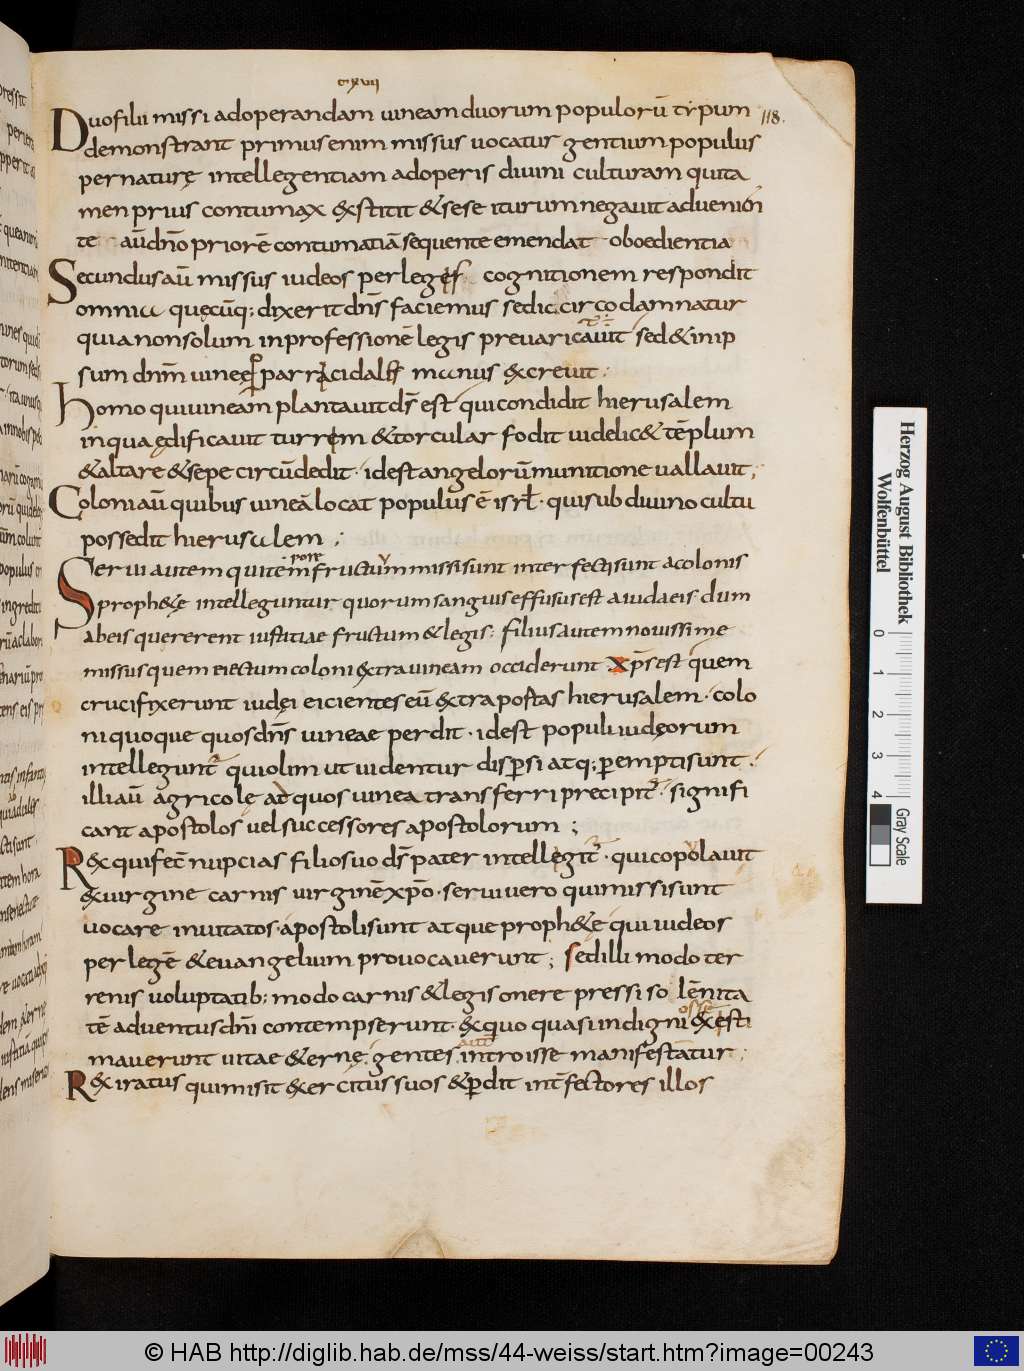 cxvii
118.
Duo filii missi ad operandam uineam duorum populorū typum
demonstrant primus enim missus uocatur gentium populus
per naturę intellegentiam ad operis diuini culturam qui ta
men prius contumax &xstitit & sese iturum negauit ad uenien
te aū dn̄o priorē contumatiā sequente emendat oboedientia
Secundus aū missus iudeos per legem cognitionem respondit
omnia quęcūq; dixerit dn̄s faciemus sed damnatur
quia non solum in professionē legis preuaricauit sed & in ip
sum dnm̄ uineę parricidales manus &xcreuit
homo qui uineam plantauit ds̄ est qui condidit hierusalem
in qua ędificauit turrem & torcular fodit uidelic& tēplum
& altare & sepe circūdedit · id est angelorū munitione uallauit ;
Coloni aū quibus uineā locat populus ē isrl̄ · qui sub diuino cultu
possedit hierusalem ;
Serui autem qui tempore fructuum missi sunt interfecti sunt a colonis
proph&ę intelleguntur quorum sanguis effusus est a iudaeis dum
ab eis quererent iustitiae fructum & legis ; filius autem nouissime
missus quem eiectum coloni &xtra uineam occiderunt · xp̄s est quem
crucifixerunt iudęi eicientes eū &xtra postas hierusalem · colo
ni quoque quos dn̄s uineae perdit · id est populi iudęorum
intelleguntr̄ qui olim ut uidentur disp̄si atq; p̄empti sunt .
illi aū agricole ad quos uinea transferri precipitr̄ · signifi
cant apostolos uel successores apostolorum ;
R&x qui fec̄ nupcias filio suo ds̄ pater intellegitr̄ · qui copolauit
&x uirgine carnis uirginē xp̄o · serui uero qui missi sunt
uocare inuitatos · apostoli sunt atque proph&ę qui iudeos
per legē & euangelium prouocauerunt ; sed illi modo ter
renis uoluptatib; modo carnis & legis onere pressi solēnita
tē aduentus dn̄i contempserunt · &x quo quasi indigni &xesti
mauerunt uitae & ernę · gentes introisse manifestatur ;
R&x iratus qui misit &xercitus suos & p̄dit int̄fectores illos
Herzog August Bibliothek
Wolfenbüttel
0 1 2 3 4
Gray Scale
© HAB http://diglib.hab.de/mss/44-weiss/start.htm?image=00243